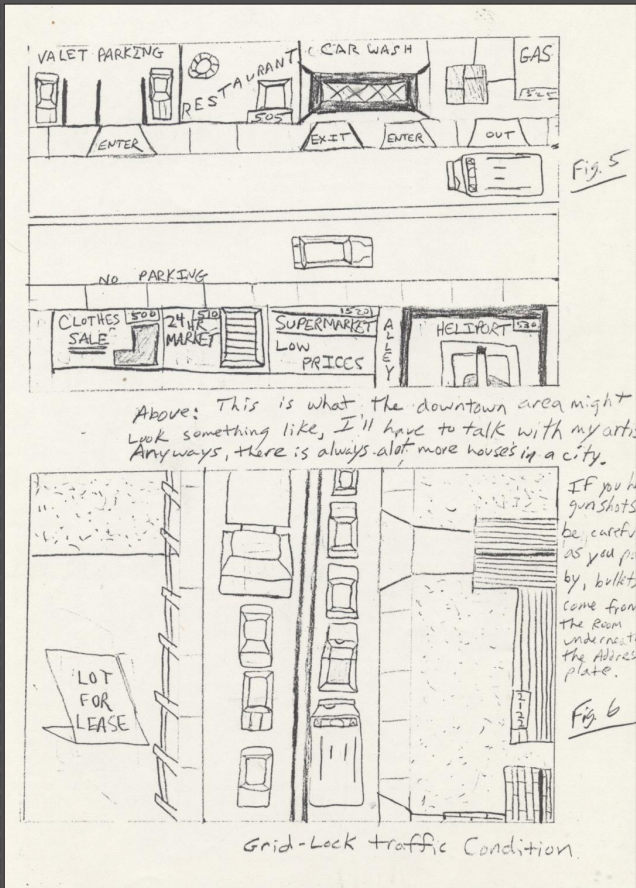 VALET PARKING
RESTAURANT
CAR WASH
GAS
1525
505
ENTER
EXIT
ENTER
OUT
Fig. 5
NO PARKING
CLOTHES
SALE
500
24 HR
MARKET
510
1520
SUPERMARKET
LOW
PRICES
ALLEY
HELIPORT
530
Above: This is what the downtown area might
Look something like, I'll have to talk with my artis
Anyways, there is always alot more houses in a city.
IF you h
gunshots
be carefu
as you pa
by, bullets
come from
the Room
underneat
the Addres
plate.
Fig. 6
LOT
FOR
LEASE
2132
Grid-Lock traffic Condition